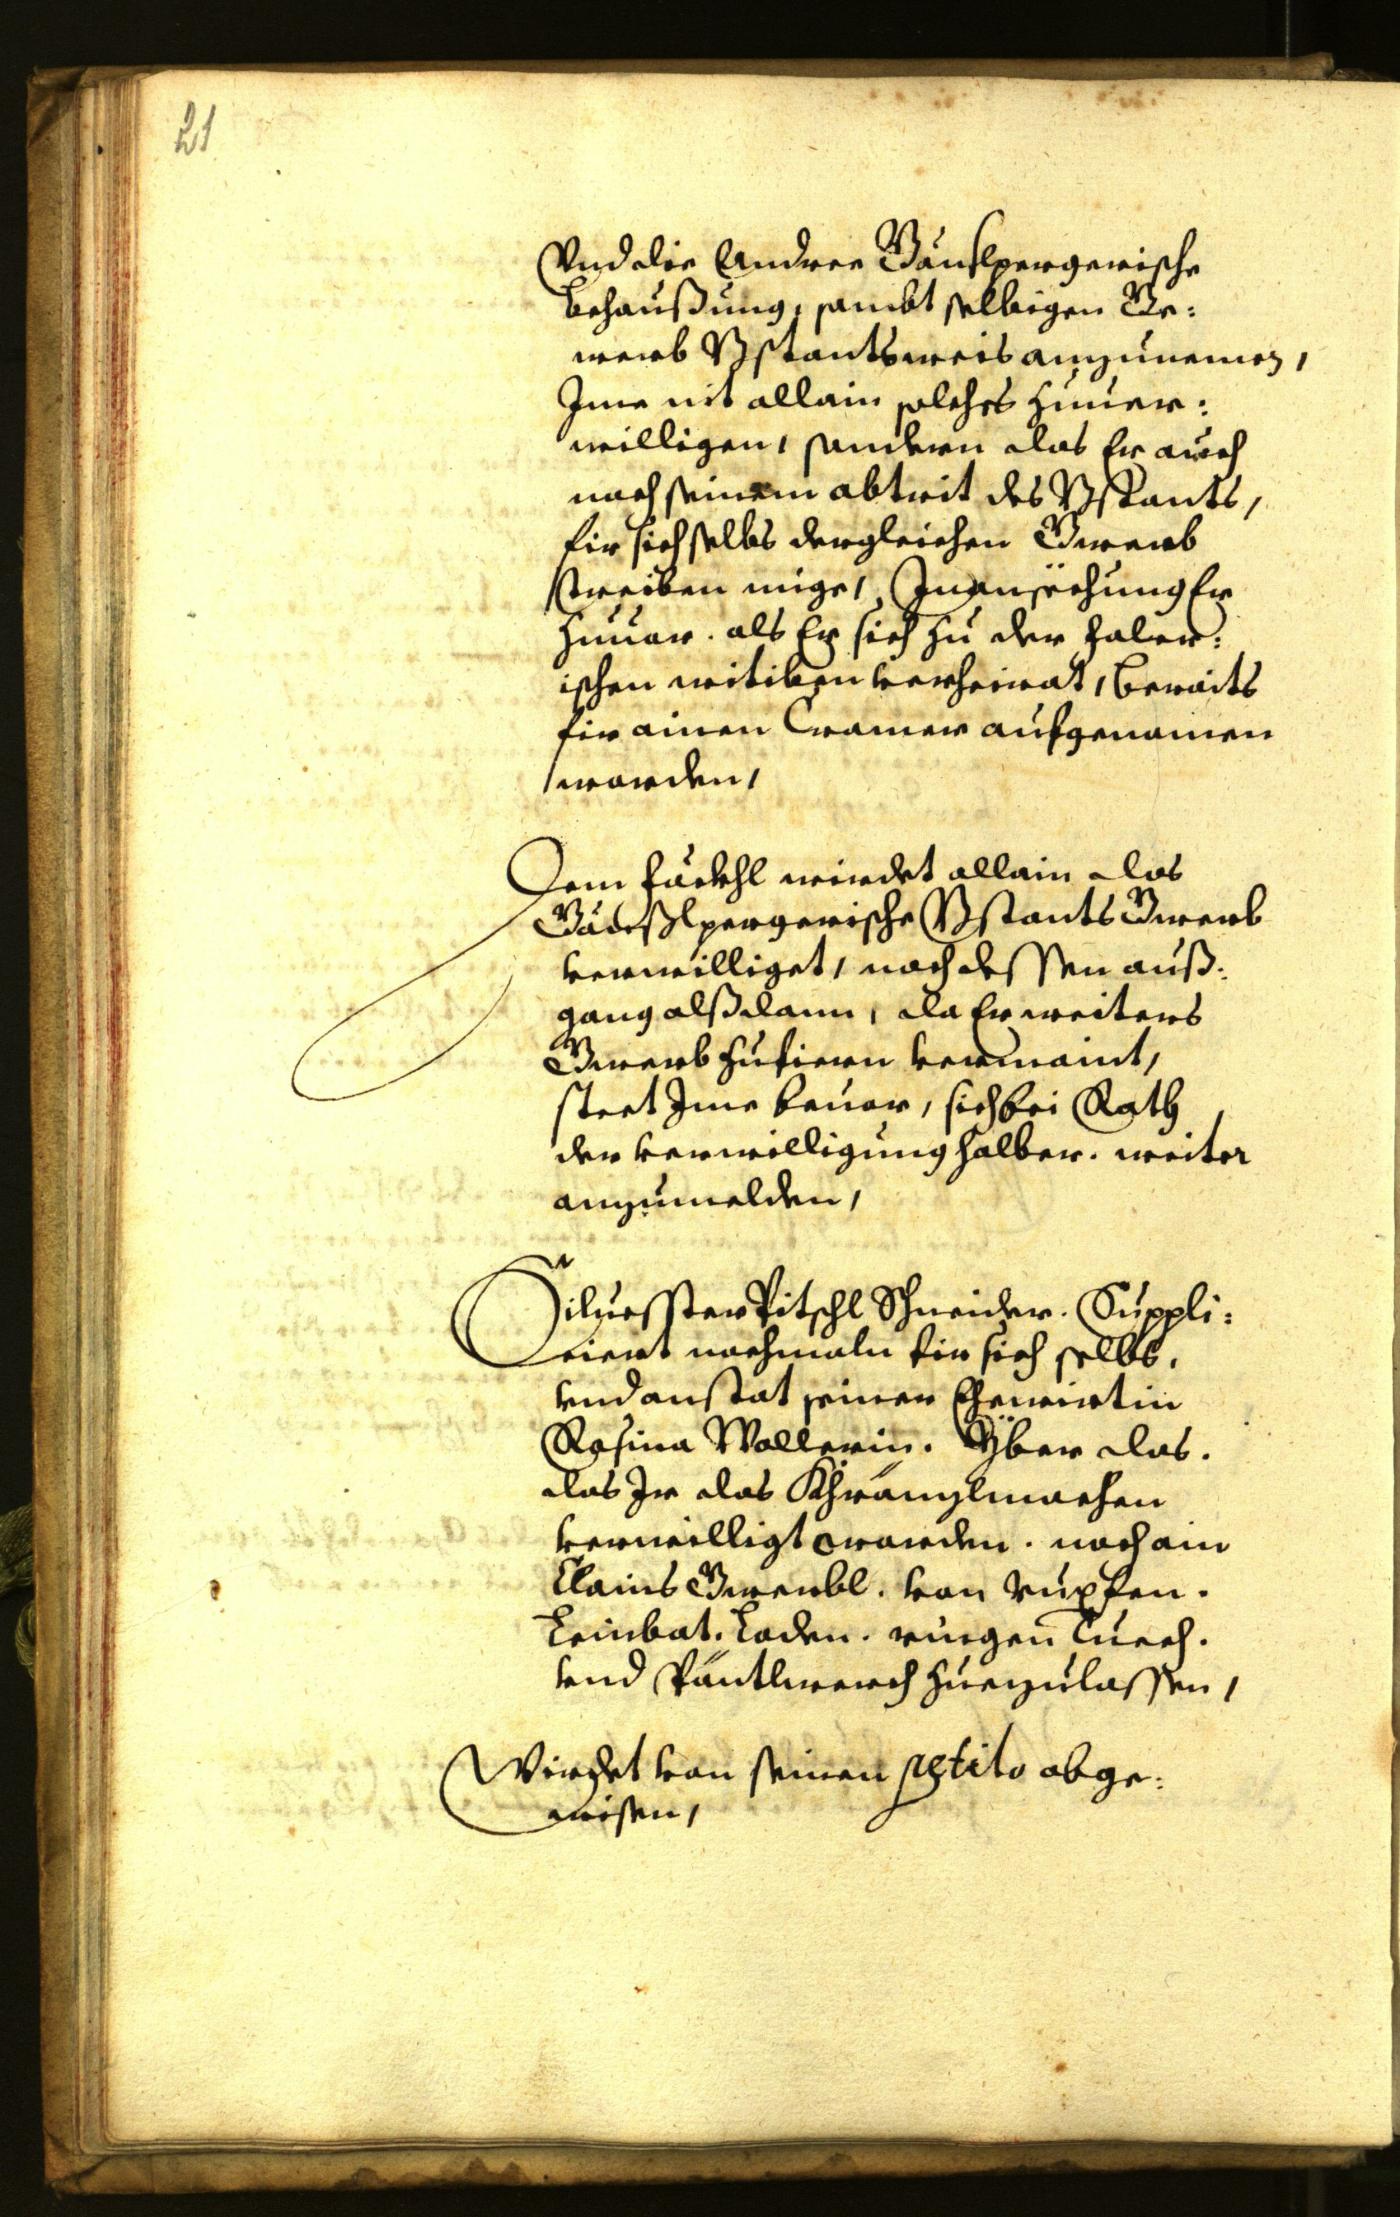 21
Vnd die Andree Gänslpergerische
behaußung, sambt selbigen Ge¬
werb Bstantsweis anzunemen,
Jme nit allain solches zuuer¬
willigen, sondern das Er auch
nach seinem abtrit des Bstants,
fir sich selbs dergleichen Gwerb
treiben müge, Jn ansëchung Er
zuuor. als Er sich zu der Haler¬
ischen witiben verheirat, beraits
fir ainen Cramer aufgenomen
worden,
Dem wirdet allain das
Bstants Gwerb
verwilliget, nach dessen auß¬
gang alßdann, da Er weiters
Gwerb zufieren vermaint,
steet Jme beuor, sich bei Rath
der verwilligung halber. weiter
anzumelden,
Siluesster Pitschl Schneider. Suppli¬
ciert nochmaln fir sich selbs,
vnd anstat seiner Ehewirtin
Rosina Wallerin. Yber das.
das Jr das Khränzlmachen
verwilligt worden. noch ain
Clains Gwerbl. von rupfen.
Leinbat. Loden. ringen Tuech.
vnd Päntlwerch zuezulassen,
Wirdet von seinen petito abge¬
wisen,